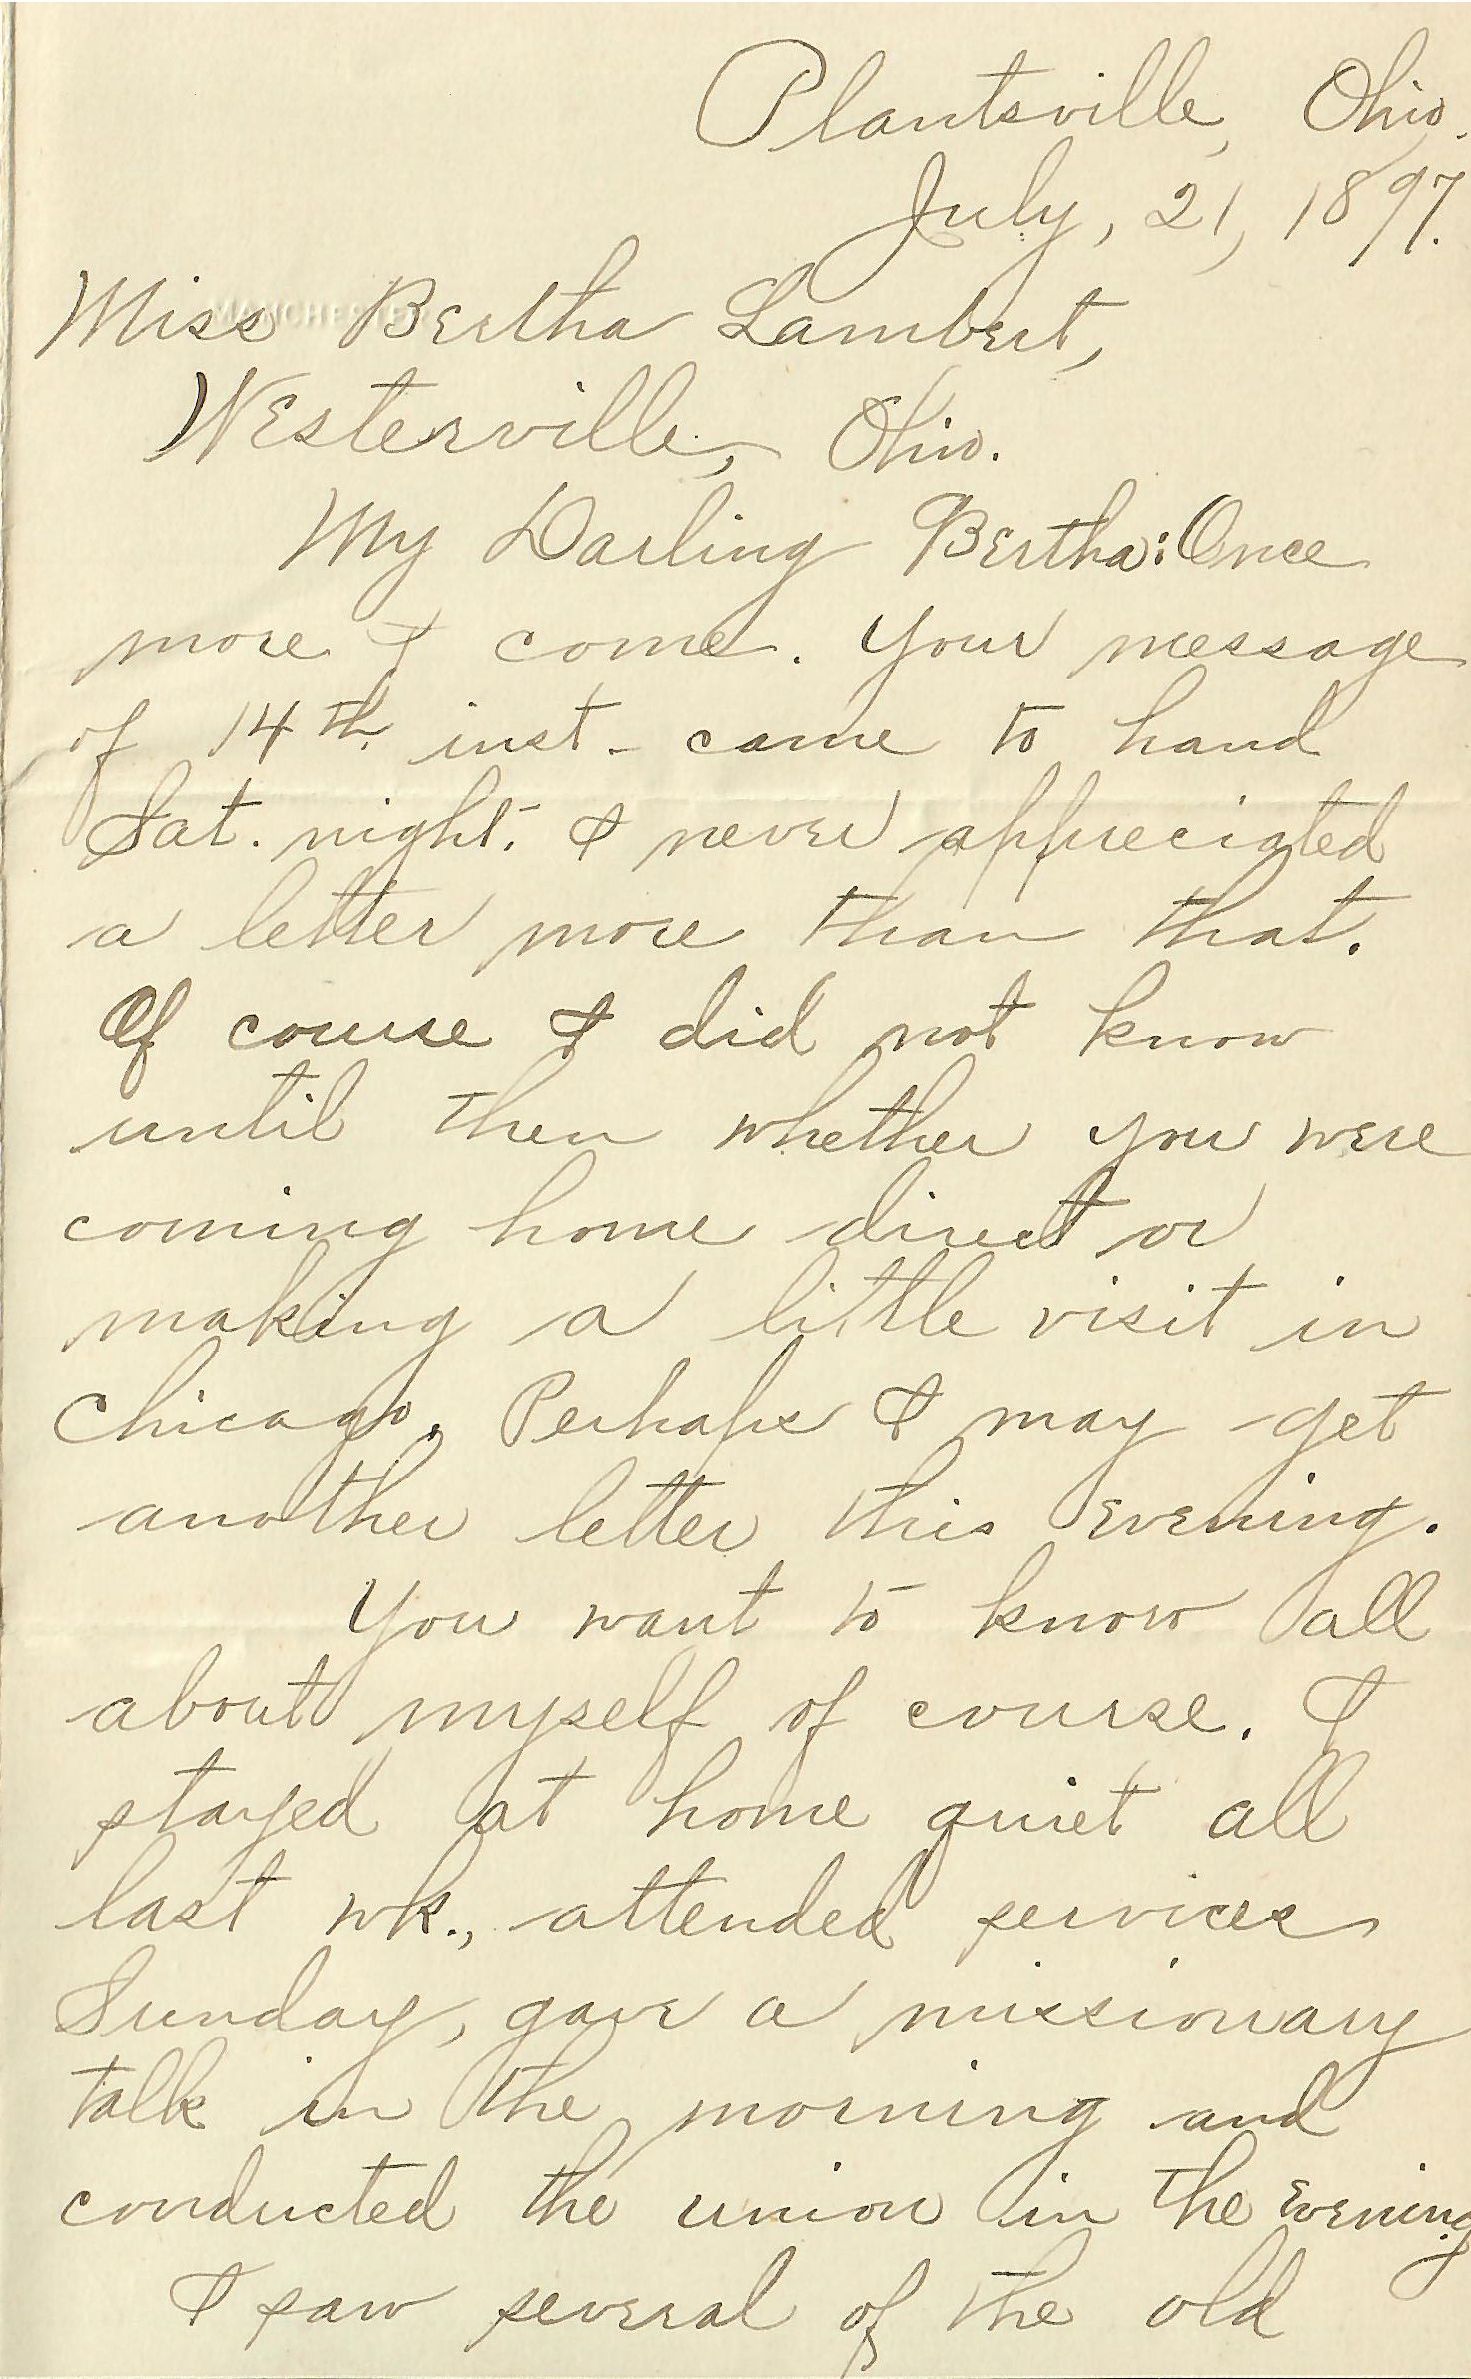 Plantsville, Ohio.
July, 21, 1897.
MANCHESTER
Miss Bertha Lambert,
Westerville, Ohio.
My Darling Bertha: Once
more I come. Your message
of 14th. inst - came to hand
Sat. night. I never appreciated
a letter more than that.
Of course I did not know
until then whether you were
coming home direct or
making a little visit in
Chicago. Perhaps I may get
another letter this evening.
You want to know all
about myself of course. I
stayed at home quiet all
last wk., attended services
Sunday, gave a missionary
talk in the morning and
conducted the union in the evening.
I saw several of the old